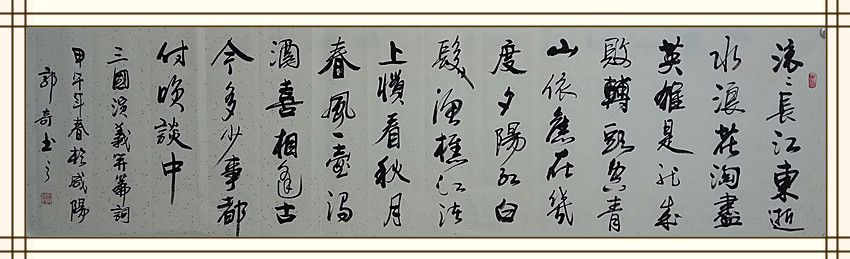 滚〻長江東逝
水浪花淘盡
英雄是非成
敗轉頭空青
山依舊在幾
度夕陽紅白
髮漁樵江渚
上慣看秋月
春風一壺濁
酒喜相逢古
今多少事都
付咲談中
三國演義开篇詞
甲午年春於咸陽
郭奇书之